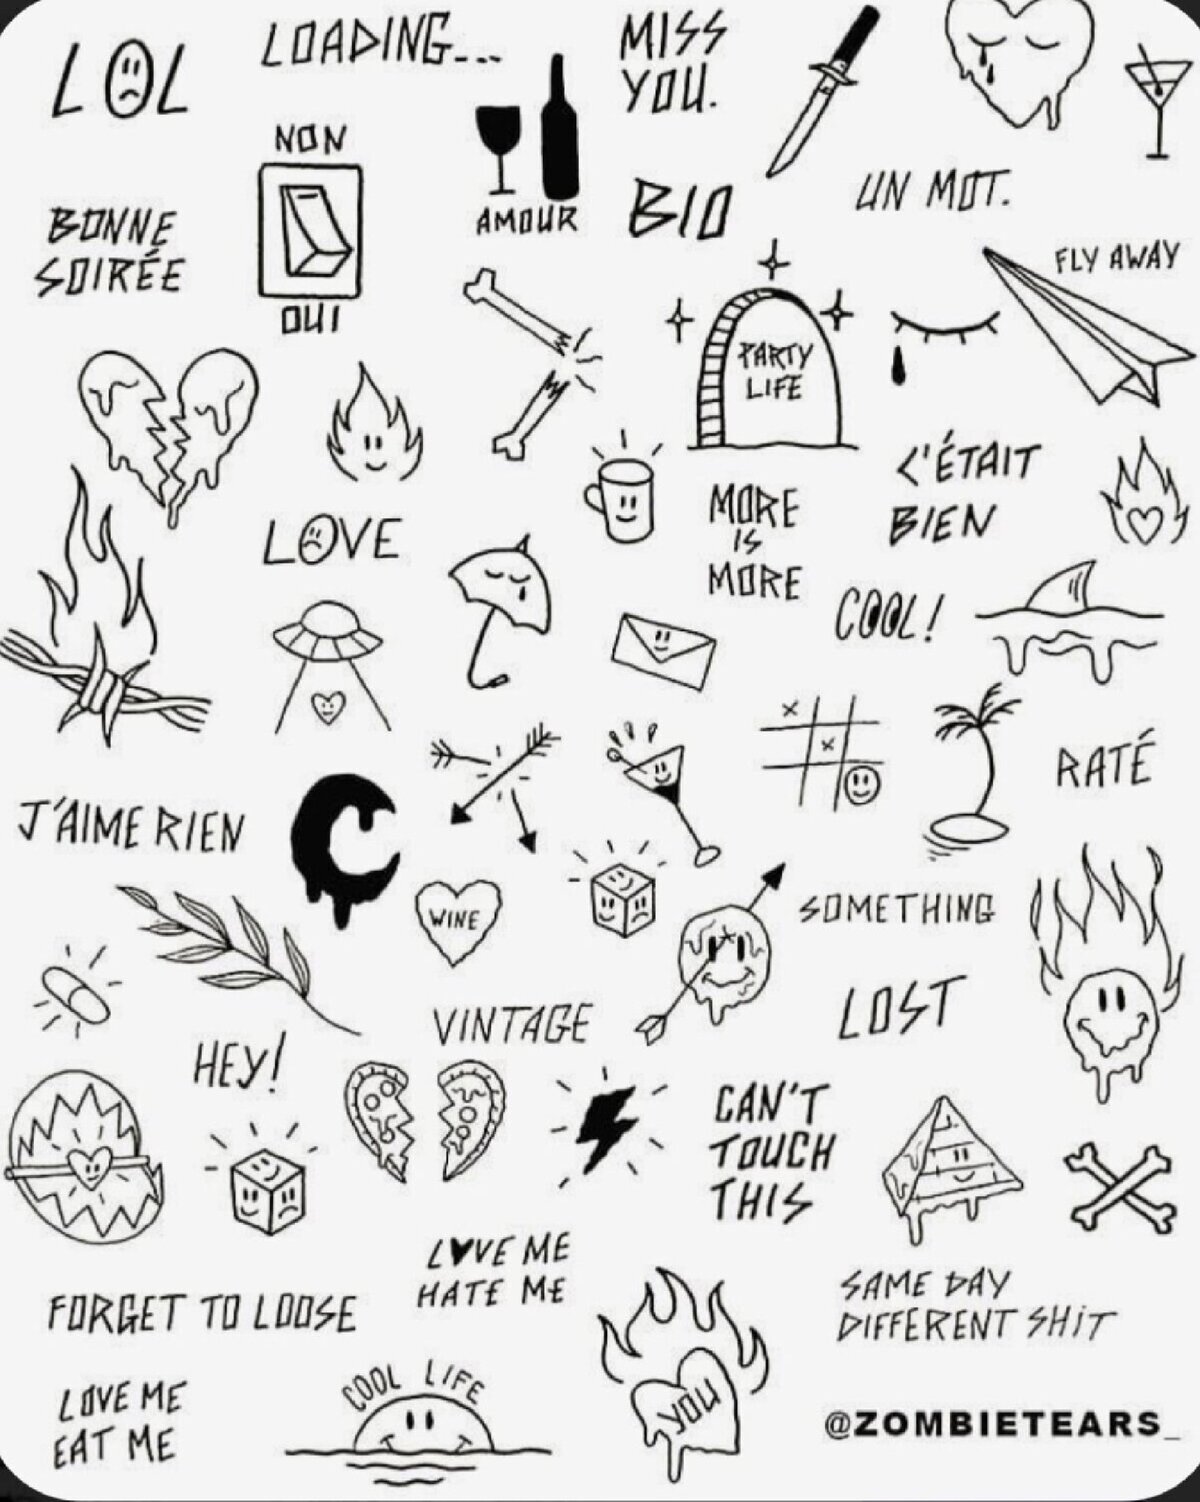 LOL
LOADING...
MISS
YOU.
NON
OUI
AMOUR
BIO
UN MOT.
BONNE
SOIRÉE
FLY AWAY
PARTY
LIFE
C'ÉTAIT
BIEN
MORE
IS
MORE
LOVE
COOL!
X
X
RATÉ
J'AIME RIEN
WINE
SOMETHING
LOST
VINTAGE
HEY!
CAN'T
TOUCH
THIS
LOVE ME
HATE ME
FORGET TO LOOSE
SAME DAY
DIFFERENT SHIT
YOU
COOL LIFE
LOVE ME
EAT ME
@ZOMBIETEARS_